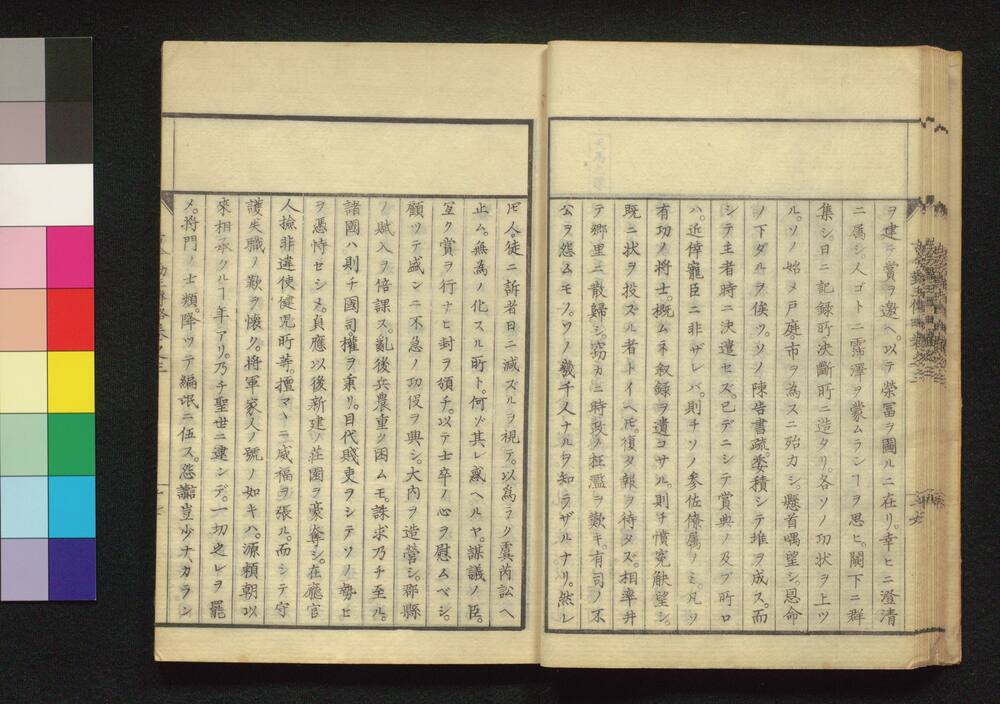 ヲ建テ賞ヲ邀ヘ。以テ榮冨ヲ圖ルニ在リ。幸ヒニ澄清
ニ属シ。人ゴトニ霈澤ヲ蒙ムランヿヲ思ヒ。闕下ニ群
集シ。日ニ記録所决斷所ニ造タリ。各ソノ功状ヲ上ツ
ル。ソノ始メ戸庭。市ヲ為スニ殆カシ。懸首喁望シ。恩命
ノ下ダルヲ俟ツ。ソノ陳告書疏。委積シテ堆ヲ成ス。而
シテ主者時ニ决遣セズ。已デニシテ賞典ノ及ブ所ロ
ハ。近倖寵臣ニ非ザレバ。則チソノ参佐僚属ノミ。凡ソ
有功ノ将士。概ムネ叙録ヲ遺コサル。則チ憤寃觖望シ。
既ニ状ヲ投ズル者トイヘ𪜈。復タ報ヲ待タズ。相率井
テ郷里ニ散歸シ。窃カニ時政ノ枉濫ヲ歎キ。有司ノ不
公ヲ怨ムモノ。ソノ幾千人ナルヲ知ラザルナリ。然レ
𪜈。人徒ニ訴者日ニ減ズルヲ視テ。以為ラク虞芮訟ヘ
止ム。無為ノ化スル所ト。何ゾ其レ惑ヘルヤ。謀議ノ臣。
亙ク賞ヲ行ナヒ封ヲ頒チ。以テ士卒ノ心ヲ慰ムベシ。
顧ツテ盛ンニ不急ノ功役ヲ興シ。大内ヲ造營シ。郡縣
ノ賦入ヲ倍課ス。亂後兵農重ク困ムモ。誅求乃チ至ル。
諸國ハ則チ國司。權ヲ乗リ。目代賤吏ヲシテソノ勢ヒ
ヲ憑恃セシメ。貞應以後新建ノ荘園ヲ豪奪シ。在廳官
人撿非違使健児所等。擅マヽニ威福ヲ張ル。而シテ守
護失職ノ歎ヲ懐ク。将軍家人ノ號ノ如キハ。源頼朝以
來相承クルヿ年アリ。乃チ聖世ニ逮ンデ。一切之レヲ罷
メ。将門ノ士類。降ツテ編氓ニ伍ス。怨讟豈少ナカラン